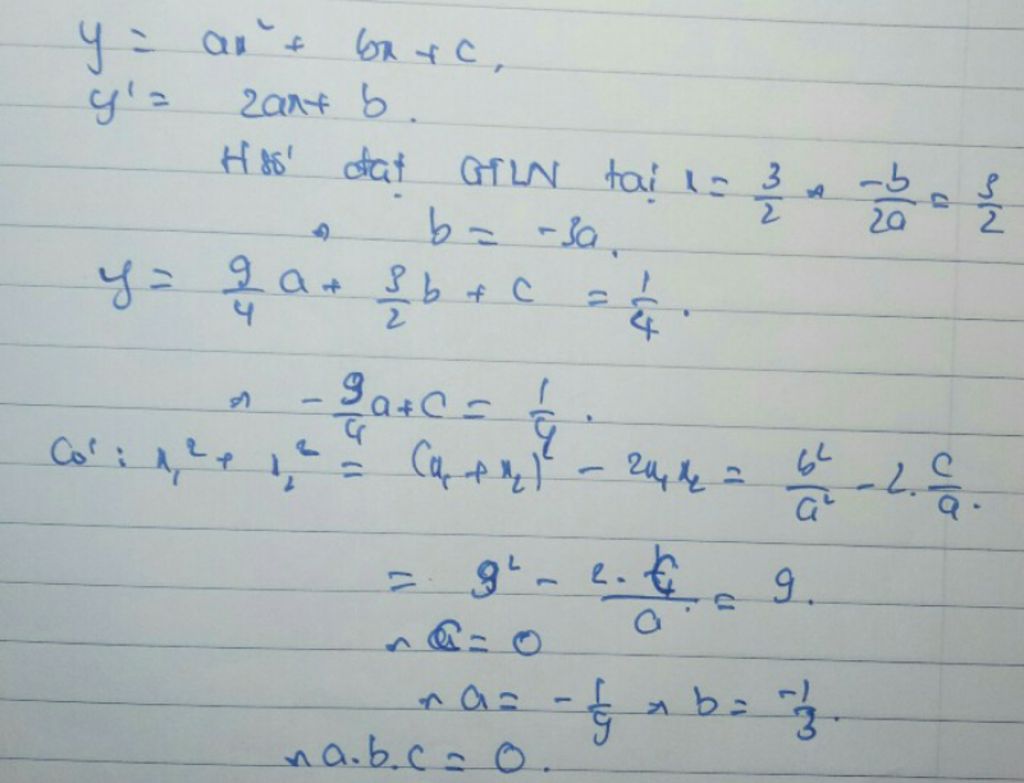 y = ax² + bx + c,
y' = 2ax + b.
H số đạt GTLN tại x = 3/2 ⇒ -b/2a = 3/2
⇒ b = -3a.
y = 9/4 a + 3/2 b + c = 1/4.
⇒ -9/4 a + c = 1/4.
Có: x₁² + x₂² = (x₁ + x₂)² - 2x₁x₂ = b²/a² - 2. c/a.
= 3² - 2.c/a = 9.
⇒ c = 0
⇒ a = -1/9 ⇒ b = -1/3.
⇒ a.b.c = 0.